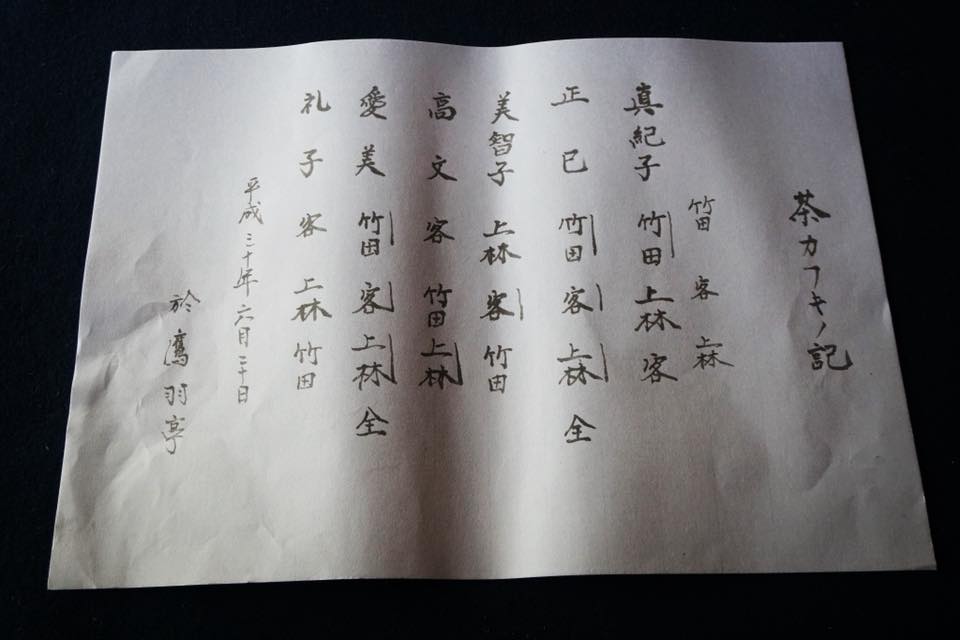 茶カフキノ記
竹田 客 上林
真紀子 竹田 上林 客
正巳 竹田 客 上林 全
美智子 上林 客 竹田
高文 客 竹田 上林
愛美 竹田 客 上林 全
礼子 客 上林 竹田
平成三十年六月二十日
於 鷹羽亭